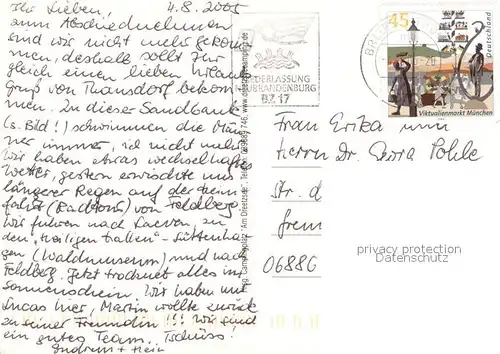 Ihr Lieben, 4.8.2005
zum Abschiednehmen
sind wir nicht mehr gekom-
men, deshalb sollt Ihr
gleich einen lieben Urlaubs-
gruß von Thansdorf bekom-
men. Zu dieser Sandbank
(s. Bild!) schwimmen die Män-
ner immer, ich nicht mehr.
Wir haben etwas wechselhaftes
Wetter, gestern erwischte uns
längerer Regen auf der Heim-
fahrt (Radtour) von Feldberg.
Wir fuhren nach Carwitz, zu
den "Heiligen Hallen" - Lüttenha-
gen (Waldmuseum) und nach
Feldberg. Jetzt trocknet alles im
Sonnenschein. Wir haben nur
Lucas hier, Martin wollte zurück
zu seiner Freundin!!! Wir sind
ein gutes Team. Tschüss!
Gudrun + Hein
Hrsg. Campingplatz "Am Dreetzsee", Telefon 746, www.dreetzseecamping.de
NIEDERLASSUNG
NEUBRANDENBURG
BZ 17
45
Deutschland
Viktualienmarkt München
Frau Erika und
Herrn Dr. Pohle
Str. d
06886
privacy protection
Datenschutz